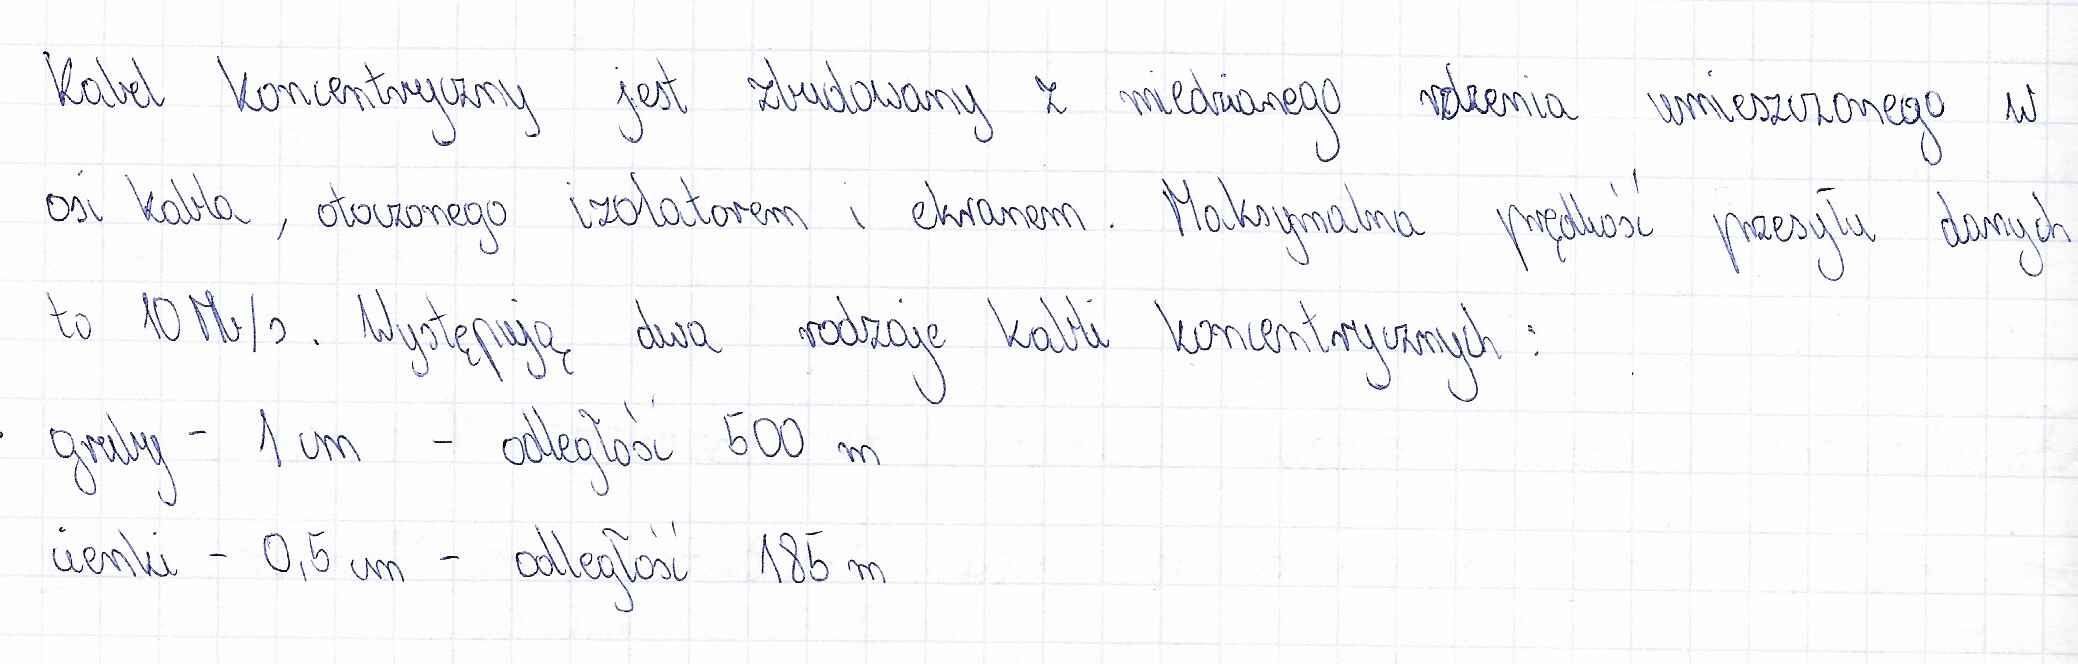 Kabel koncentryczny jest zbudowany z miedzianego rdzenia umieszczonego w
osi kabla, otoczonego izolatorem i ekranem. Maksymalna prędkość przesyłu danych
to 10 Mb/s. Występują dwa rodzaje kabli koncentrycznych:
gruby - 1 cm - odległość 500 m
cienki - 0,5 cm - odległość 185 m